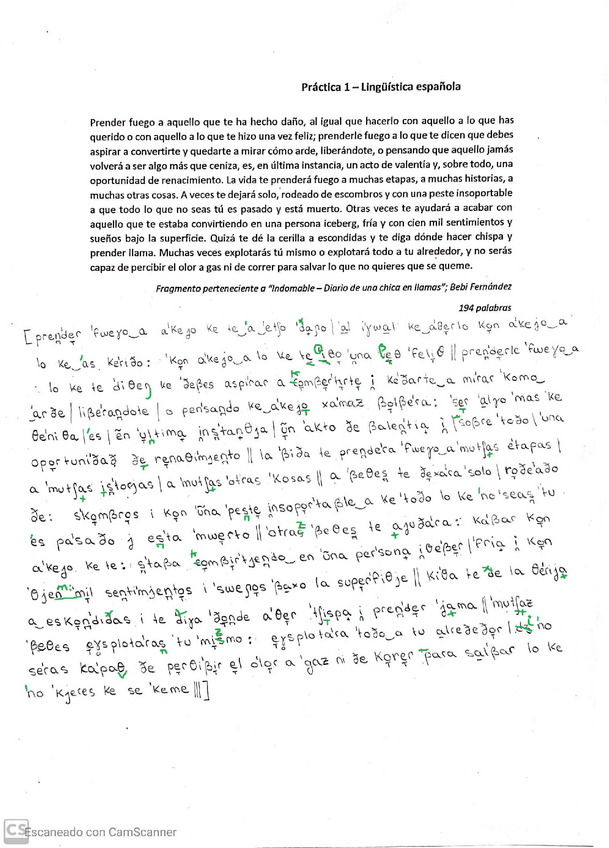 Práctica 1 – Lingüística española
Prender fuego a aquello que te ha hecho daño, al igual que hacerlo con aquello a lo que has
querido o con aquello a lo que te hizo una vez feliz; prenderle fuego a lo que te dicen que debes
aspirar a convertirte y quedarte a mirar cómo arde, liberándote, o pensando que aquello jamás
volverá a ser algo más que ceniza, es, en última instancia, un acto de valentía y, sobre todo, una
oportunidad de renacimiento. La vida te prenderá fuego a muchas etapas, a muchas historias, a
muchas otras cosas. A veces te dejará solo, rodeado de escombros y con una peste insoportable
a que todo lo que no seas tú es pasado y está muerto. Otras veces te ayudará a acabar con
aquello que te estaba convirtiendo en una persona iceberg, fría y con cien mil sentimientos y
sueños bajo la superficie. Quizá te dé la cerilla a escondidas y te diga dónde hacer chispa y
prender llama. Muchas veces explotarás tú mismo o explotará todo a tu alrededor, y no serás
capaz de percibir el olor a gas ni de correr para salvar lo que no quieres que se queme.
Fragmento perteneciente a "Indomable – Diario de una chica en llamas"; Bebi Fernández
194 palabras
[ pren̪der ˈfweɣo‿a aˈkeʝo ke te‿a‿etʃo
lo ke‿as keˈɾido: ˈkon aˈkeʝo‿a lo ke te ˈuna feˈliθ || prenˈderle ˈfweɣo‿a
lo ke te ˈdiθen ke ˈdeβes aspiˈrar a i keˈðarte‿a miˈrar ˈkomo
ˈarðe | liβeˈrandote | o penˈsando ke‿aˈkeʝo xaˈmaz βolβeˈra: ser ˈalɣo ˈmas ke
θeˈniθa | es | en ˈultima insˈtanθja | un ˈakto de balenˈtia i | soβre ˈtodo | ˈuna
oportuniˈðað de renaθiˈmjento || la ˈβida te prendeˈra ˈfweɣo‿a ˈmutʃas eˈtapas |
a ˈmutʃas isˈtorjas | a ˈmutʃas ˈotras ˈkosas || a ˈβeθes te dexaˈra ˈsolo | roˈdeado
de: sˈkombros i kon ˈuna ˈpeste insoporˈtaβle‿a ke ˈtodo lo ke ˈno ˈseas ˈtu
es paˈsado j esˈta ˈmwerto || ˈotras ˈβeθes te aʝuˈdara: kaˈβar kon
aˈkeʝo ke te: sˈtaβa en ˈuna perˈsona iθeˈβer | ˈfria i kon
ˈθjen mil sentiˈmjentos i ˈsweɲos ˈβaxo la superˈfiθje || kiˈθa te ˈde la θeˈriʝa
a eskonˈdidas i te ˈdiɣa ˈdonde aˈθer ˈtʃispa i prenˈder ˈʝama || ˈmutʃaz
ˈβeθes eɣsploˈtaras ˈtu ˈmizmo: eɣsploˈtara ˈtodo‿a tu alreðeˈdor | ˈno
seˈras kaˈpaθ de perθiˈβir el oˈlor a ˈgaz ni de koˈrer para salˈβar lo ke
ˈno ˈkjeres ke se ˈkeme ||| ]
CS Escaneado con CamScanner